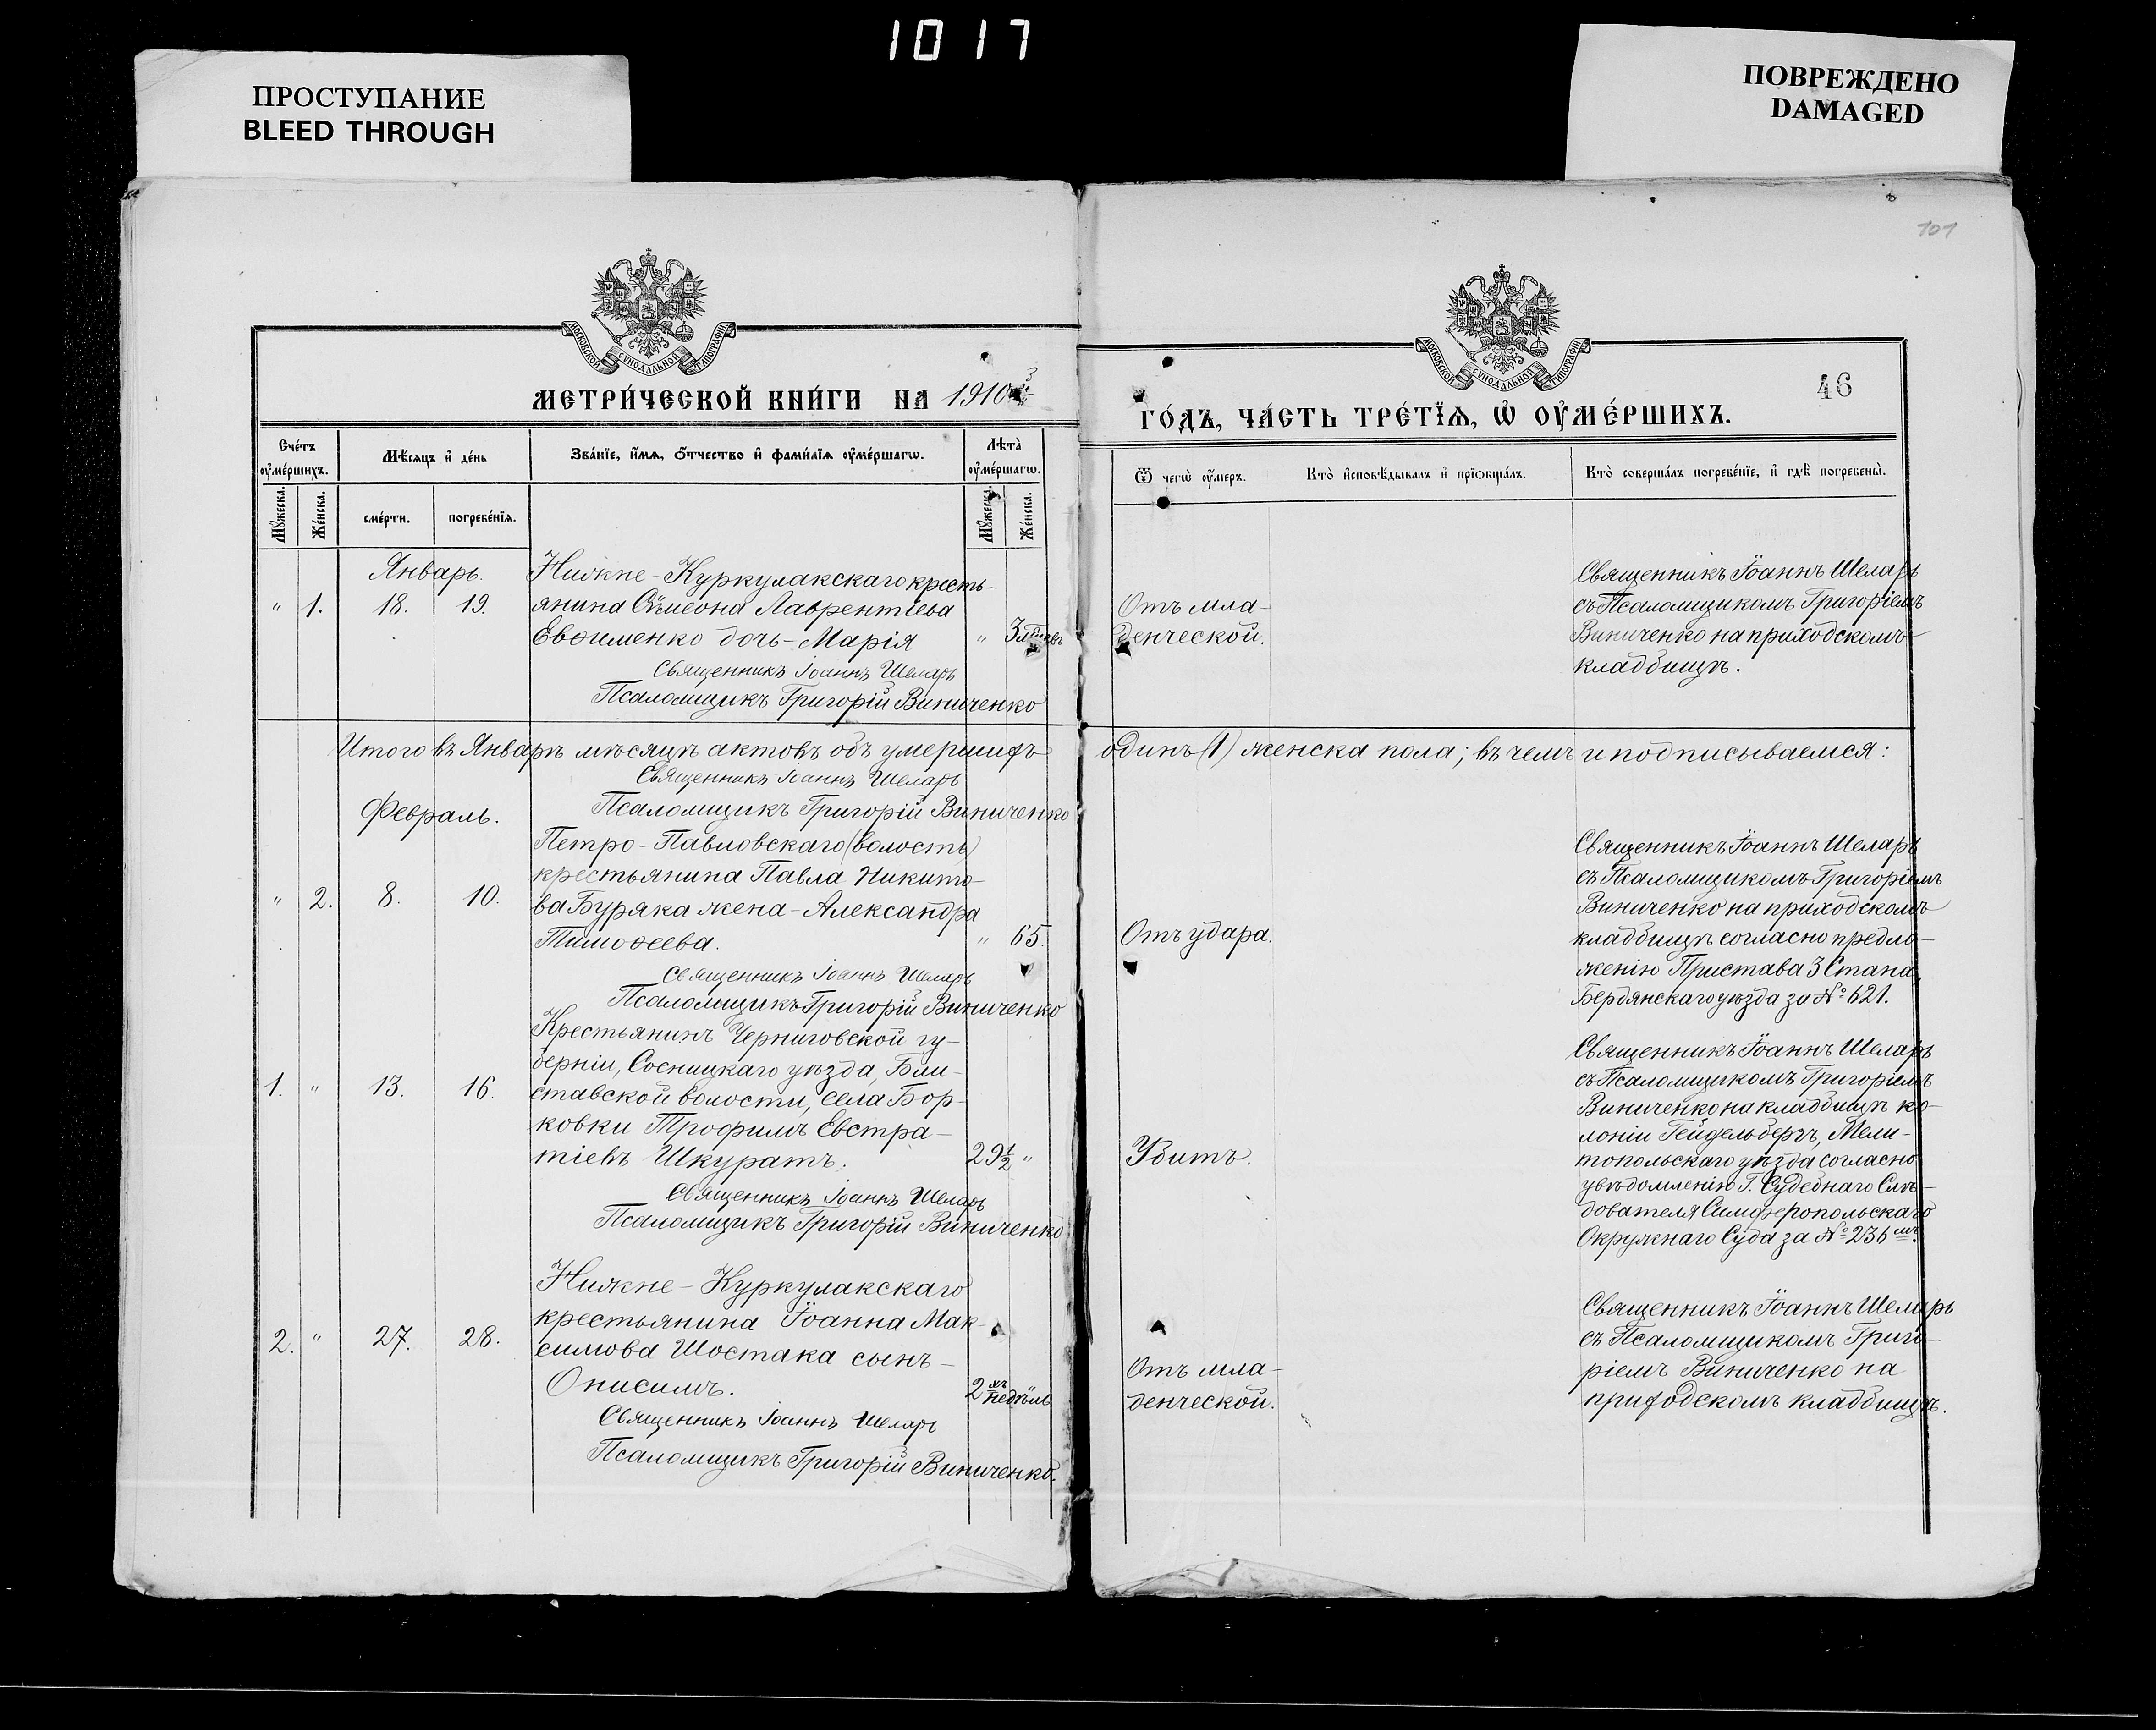 1017
ПРОСТУПАНИЕ
BLEED THROUGH
ПОВРЕЖДЕНО
DAMAGED
101
МОСКОВСКОЙ СѴНОДАЛЬНОЙ ТИПОГРАФІИ
МОСКОВСКОЙ СѴНОДАЛЬНОЙ ТИПОГРАФІИ
46
МЕТРИ́ЧЕСКОЙ КНИ́ГИ НА 1910
ГО́ДЪ, ЧА́СТЬ ТРЕ́ТЇѦ, Ѽ ОУ҆МЕ́РШИХЪ.
Сче́тъ оу҆ме́ршихъ.
Мѣ́сяцъ и҆ де́нь
Зва́нїе, и҆́мѧ, ѻ҆́тчество и҆ фами́лїѧ оу҆ме́ршагѡ.
Лѣта̀ оу҆ме́ршагѡ.
Ѿ чегѡ̀ оу҆́меръ.
Кто̀ и҆сповѣ́дывалъ и҆ прїѡбща́лъ.
Кто̀ соверша́лъ погребе́нїе, и҆ гдѣ̀ погребены̀.
Мꙋ́жеска.
Же́нска.
сме́рти.
погребе́нїѧ.
Мꙋ́жеска.
Же́нска.
Январь.
Нижне-Куркулакскаго кресть-
" 1. 18. 19. янина Сѵмеона Лаврентіева
Евѳименко дочь-Марія " 3
Священникъ Іоаннъ Шеларь
Псаломщикъ Григорій Виниченко
Отъ мла-
денческой.
Священникъ Іоаннъ Шеларь
съ Псаломщикомъ Григоріемъ
Виниченко на приходскомъ
кладбищѣ.
Итого въ Январѣ мѣсяцѣ актовъ объ умершихъ одинъ (1) женска пола; въ чемъ и подписываемся:
Священникъ Іоаннъ Шеларь
Псаломщикъ Григорій Виниченко
Февраль.
Петро-Павловскаго (волость)
крестьянина Павла Никито-
" 2. 8. 10. ва Буряка жена-Александра
Тимоѳеева. " 65.
Священникъ Іоаннъ Шеларь
Псаломщикъ Григорій Виниченко
Отъ удара.
Священникъ Іоаннъ Шеларь
съ Псаломщикомъ Григоріемъ
Виниченко на приходскомъ
кладбищѣ согласно предло-
женію Пристава 3 Стана,
Бердянскаго уѣзда за № 621.
Крестьянинъ Черниговской гу-
берніи, Сосницкаго уѣзда, Бли-
1. " 13. 16. ставской волости, села Бор-
ковки Трофимъ Евстра-
тіевъ Шкуратъ. 29½ "
Священникъ Іоаннъ Шеларь
Псаломщикъ Григорій Виниченко
Убитъ.
Священникъ Іоаннъ Шеларь
съ Псаломщикомъ Григоріемъ
Виниченко на кладбищѣ ко-
лоніи Гейдельберъ, Мели-
топольскаго уѣзда согласно
увѣдомленію Г. Судебнаго Слѣ-
дователя Симферопольскаго
Окружнаго Суда за № 236 мъ.
Нижне-Куркулакскаго
крестьянина Іоанна Мак-
2. " 27. 28. симова Шостака сынъ-
Онисимъ. 2 хъ недѣль
Священникъ Іоаннъ Шеларь
Псаломщикъ Григорій Виниченко.
Отъ мла-
денческой.
Священникъ Іоаннъ Шеларь
съ Псаломщикомъ Григо-
ріемъ Виниченко на
приходскомъ кладбищѣ.